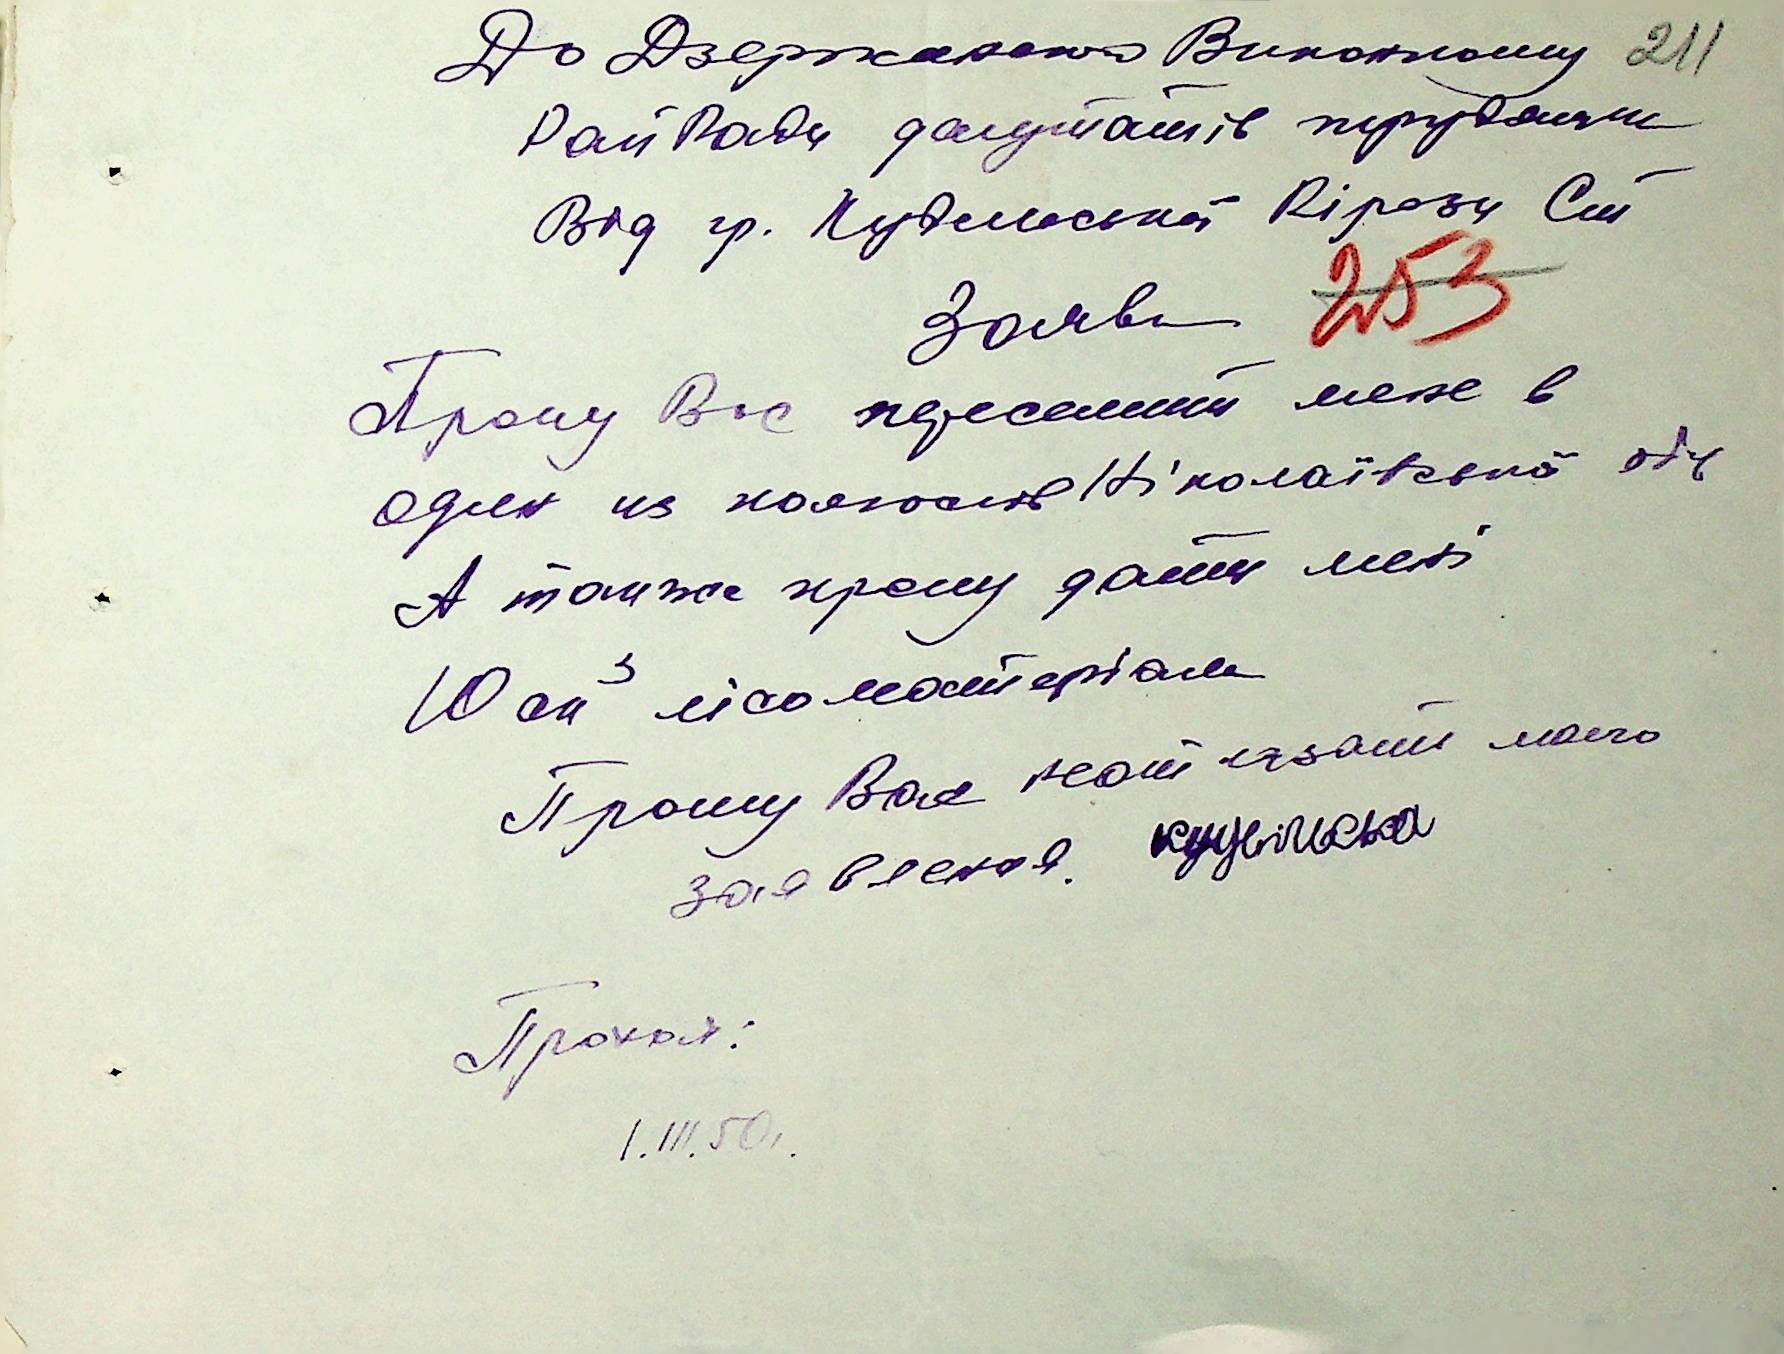 До Державного Виконкому 211
РайРади депутатів трудящих
Від гр. Кудельської Рірози Ст
Заява 253
Прошу Вас переселити мене в
один из колхозів Ніколаївської обл
А также прошу дати мені
10 см³ лісоматеріали
Прошу Вас неот'язати моего
заявления. кудільська
Прохач:
1.III.50г.